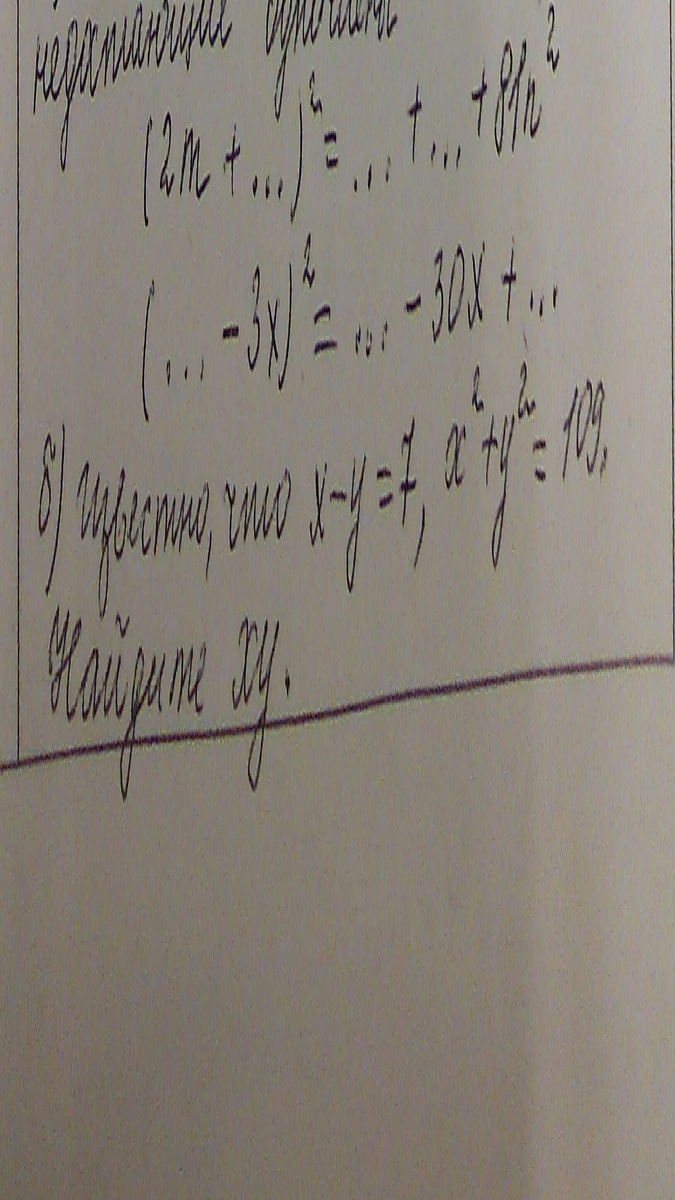 недостающие одночлены
(2m + ...)² = ... + ... + 81n²
(... - 3x)² = ... - 30x + ...
б) Известно, что x - y = 7, x² + y² = 109.
Найдите xy.